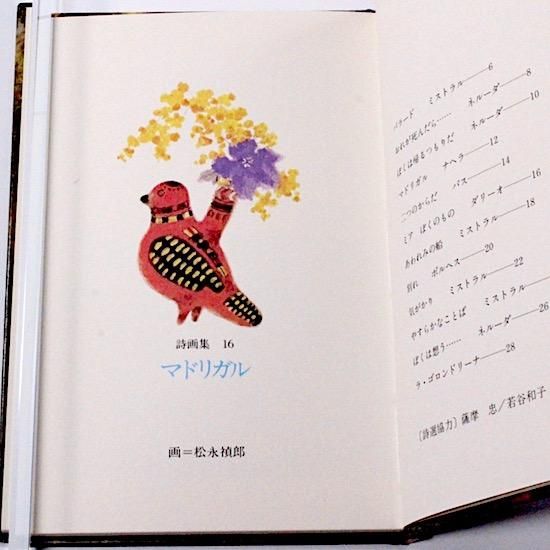 詩画集 16
マドリガル
画=松永禎郎
バラード ミストラル——6
おれが死んだら…… ネルーダ——8
ぼくは帰るつもりだ ネルーダ——10
マドリガル ナヘラ——12
二つのからだ パス——14
ミア ぼくのもの ダリーオ——16
あわれみの船 ミストラル——18
別れ ボルヘス——20
気がかり ミストラル——22
やすらかなことば ミストラル——
ぼくは想う…… ネルーダ——26
ラ・ゴロンドリーナ——28
〔詩選協力〕薩摩 忠/若谷和子